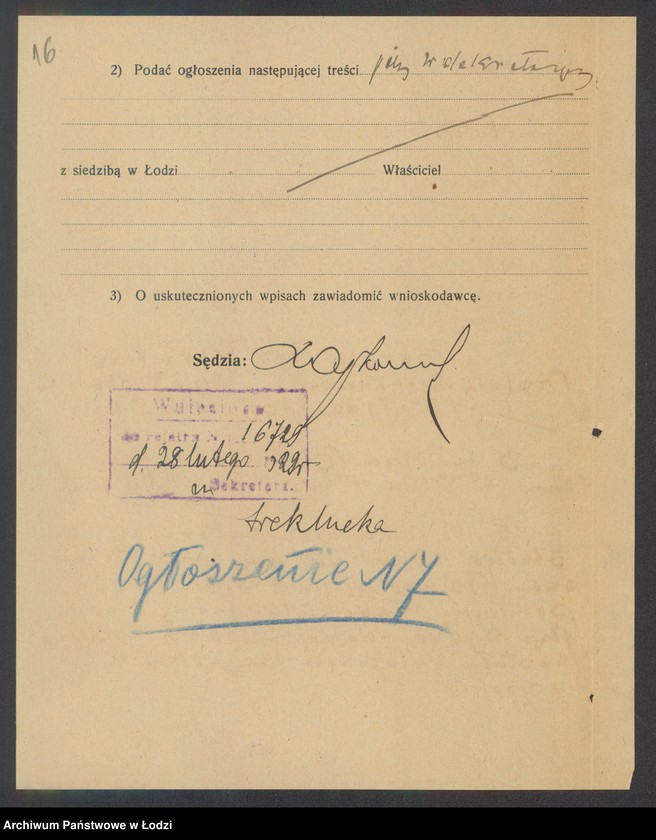 16
2) Podać ogłoszenia następującej treści
z siedzibą w Łodzi Właściciel
3) O uskutecznionych wpisach zawiadomić wnioskodawcę.
Sędzia:
do rejestru 16729
d. 28 lutego 1922 r
Sekretarz.
Ogłoszenie N 7
Archiwum Państwowe w Łodzi